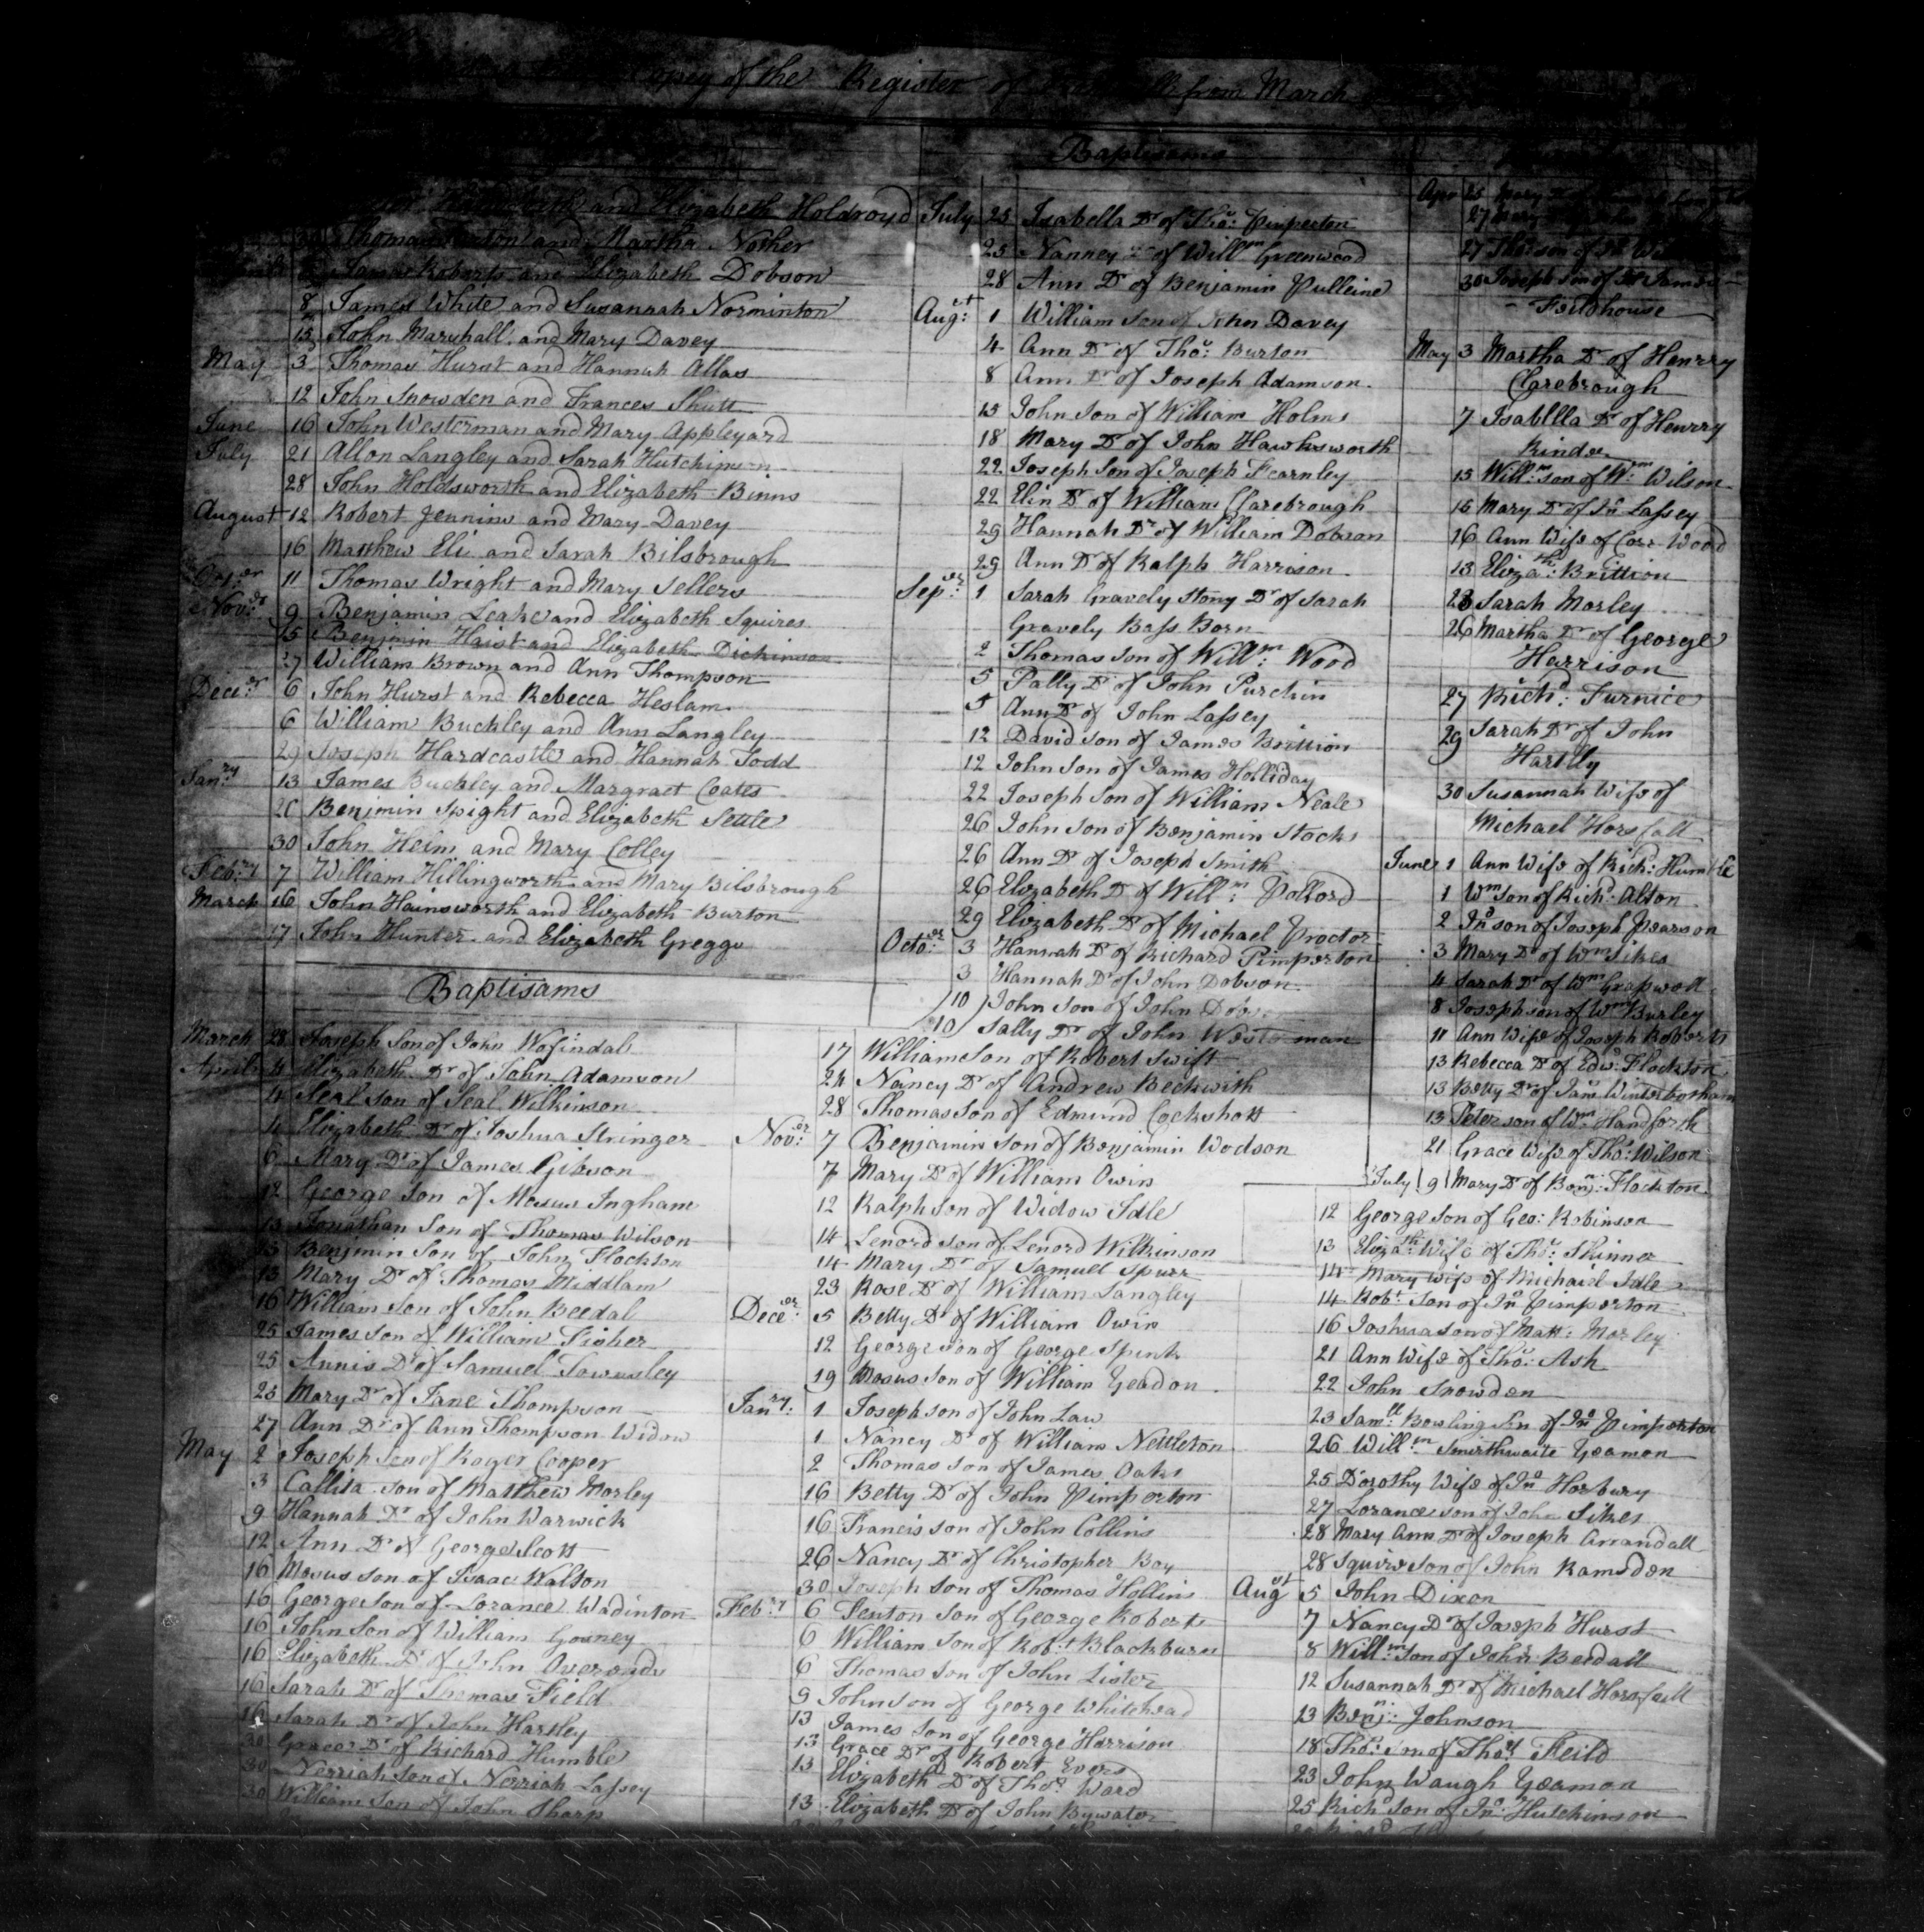 Copey of the Register of from March
and Elizabeth Holdroyd
Thomas and Martha Nother
James Roberts and Elizabeth Dobson
8 James White and Susannah Norminton
15 John Marshall and Mary Davey
May 3 Thomas Hurst and Hannah Allas
12 John Snowden and Frances Shutt
June 16 John Westerman and Mary Appleyard
July 21 Allon Langley and Sarah Hutchinson
28 John Holdsworth and Elizabeth Binns
August 12 Robert Jennins and Mary Davey
16 Matthew Eli and Sarah Bilsbrough
Oct:er 11 Thomas Wright and Mary Sellers
Nov:er 9 Benjamin Leake and Elizabeth Squires
15 Benjmin Haist and Elizabeth Dickinson
27 William Brown and Ann Thompson
Dece:er 6 John Hurst and Rebecca Heslam
6 William Buckley and Ann Langley
29 Joseph Hardcastle and Hannah Todd
Jan:ry 13 James Buckley and Margraet Coates
20 Benjmin Spight and Elizabeth Settle
30 John Heim and Mary Colley
Feb:ry 7 William Hillingworth and Mary Bilsbrough
March 16 John Hainsworth and Elizabeth Burton
17 John Hunter and Elizabeth Greggs
Baptisams
March 28 Joseph Son of John Wofindal
April 4 Elizabeth Dr of John Adamson
4 Seal son of Seal Wilkinson
4 Elizabeth Dr of Joshua Stringer
6 Mary Dr of James Gibson
12 George Son of Mosus Ingham
13 Jonathan Son of Thomas Wilson
13 Benjmin Son of John Flockton
13 Mary Dr of Thomas Middlam
16 William Son of John Beedal
25 James son of William Fisher
25 Annis Dr of Samuel Townsley
25 Mary Dr of Jane Thompson
27 Ann Dr of Ann Thompson Widow
May 2 Joseph Son of Roger Cooper
3 Callisa son of Matthew Morley
9 Hannah Dr of John Warwick
12 Ann Dr of George Scott
16 Mosus son of Isaac Walton
16 George son of Lorance Wadinton
16 John Son of William Gouney
16 Elizabeth Dr of John Overends
16 Sarah Dr of Thomas Field
16 Sarah Dr of John Hartley
30 Grace Dr of Richard Humble
30 Nerriah Son of Nerriah Lassey
30 William Son of John Sharp
Baptisams
July 25 Isabella Dr of Tho:s Pimperton
25 Nanney Dr of Willm Greenwood
28 Ann Dr of Benjamin Pulleine
Aug:st 1 William Son of John Davey
4 Ann Dr of Tho:s Burton
8 Ann Dr of Joseph Adamson
15 John Son of William Holms
18 Mary Dr of John Hawksworth
22 Joseph Son of Joseph Fearnley
22 Elin Dr of William Clarebrough
29 Hannah Dr of William Dobson
29 Ann Dr of Ralph Harrison
Sep:er 1 Sarah Gravely Stony Dr of Sarah
Gravely Bass Born
2 Thomas son of Will:m Wood
5 Pally Dr of John Purchin
5 Ann Dr of John Lassey
12 David son of James Brittion
12 John son of James Holliday
22 Joseph son of William Neale
26 John Son of Benjamin Stocks
26 Ann Dr of Joseph Smith
26 Elizabeth Dr of Will:m Pollord
29 Elizabeth Dr of Michael Proctor
Octo:er 3 Hannah Dr of Richard Pimperton
3 Hannah Dr of John Dobson
10 John son of John
10 Sally Dr of John Westerman
17 William Son of Robert Swift
24 Nancy Dr of Andrew Beckwith
28 Thomas son of Edmund Cockshott
Nov:er 7 Benjamin Son of Benjamin Wodson
7 Mary Dr of William Owin
12 Ralph son of Widow Idle
14 Lenord son of Lenord Wilkinson
14 Mary Dr of Samuel Spurr
23 Rose Dr of William Langley
Dece:er 5 Betty Dr of William Owin
12 George son of George Spink
19 Mosus son of William Yeadon
Jan:ry 1 Joseph son of John Law
1 Nancy Dr of William Nettleton
2 Thomas son of James Oaks
16 Betty Dr of John Pimperton
16 Francis son of John Collins
26 Nancy Dr of Christopher Boy
30 Joseph Son of Thomas Hollins
Feb:ry 6 Fenton son of George Roberts
6 William Son of Rob:t Blackburn
6 Thomas son of John Lister
9 John son of George Whitehead
13 James Son of George Harrison
13 Grace Dr of Robert Evers
13 Elizabeth Dr of Thos Ward
13 Elizabeth Dr of John Bywater
Apr 25 Mary
27
27 Tho:s son of Jn
30 Joseph Son of James
Fieldhouse
May 3 Martha Dr of Henrry
Clarebrough
7 Isablla Dr of Henrry
Kinder
15 Will:m son of Wm Wilson
15 Mary Dr of Jn Lassey
16 Ann Wife of Cors Wood
13 Eliza:th Brittion
23 Sarah Morley
26 Martha Dr of George
Harrison
27 Rich:d Furnice
29 Sarah Dr of John
Hartlly
30 Susannah Wife of
Michael Horsfall
June 1 Ann Wife of Rich:d Humble
1 Wm Son of Rich:d Alton
2 Jn son of Joseph Pearson
3 Mary Dr of Wm Sikes
4 Sarah Dr of Wm Graswell
8 Joseph son of Wm Burley
11 Ann Wife of Joseph Roberts
13 Rebecca Dr of Edw:d Flockton
13 Betty Dr of Jams Winterbotham
13 Peter son of Wm Handforth
21 Grace Wife of Tho:s Wilson
July 9 Mary Dr of Benj:n Flockton
12 George Son of Geo: Robinson
13 Eliza:th Wife of Tho:s Skinner
14 Mary wife of Michael Idle
14 Robt Son of Jn Pimperton
16 Joshua son of Matt: Morley
21 Ann Wife of Tho:s Ash
22 John Snowden
23 Sam:ll Bowling Son of Jn Pimperton
26 Will:m Smirthwaite Yeamon
25 Dorothy Wife of Jn Horbury
27 Lorance son of John Sikes
28 Mary Ann Dr of Joseph Arrandall
28 Squire son of John Ramsden
Augst 5 John Dixon
7 Nancy Dr of Joseph Hurst
8 Will:m Son of John Berdall
12 Susannah Dr of Michael Horsfall
13 Benj:n Johnson
18 Tho:s son of Thos Feild
23 John Waugh Yeamon
25 Richd son of Jn Hutchinson